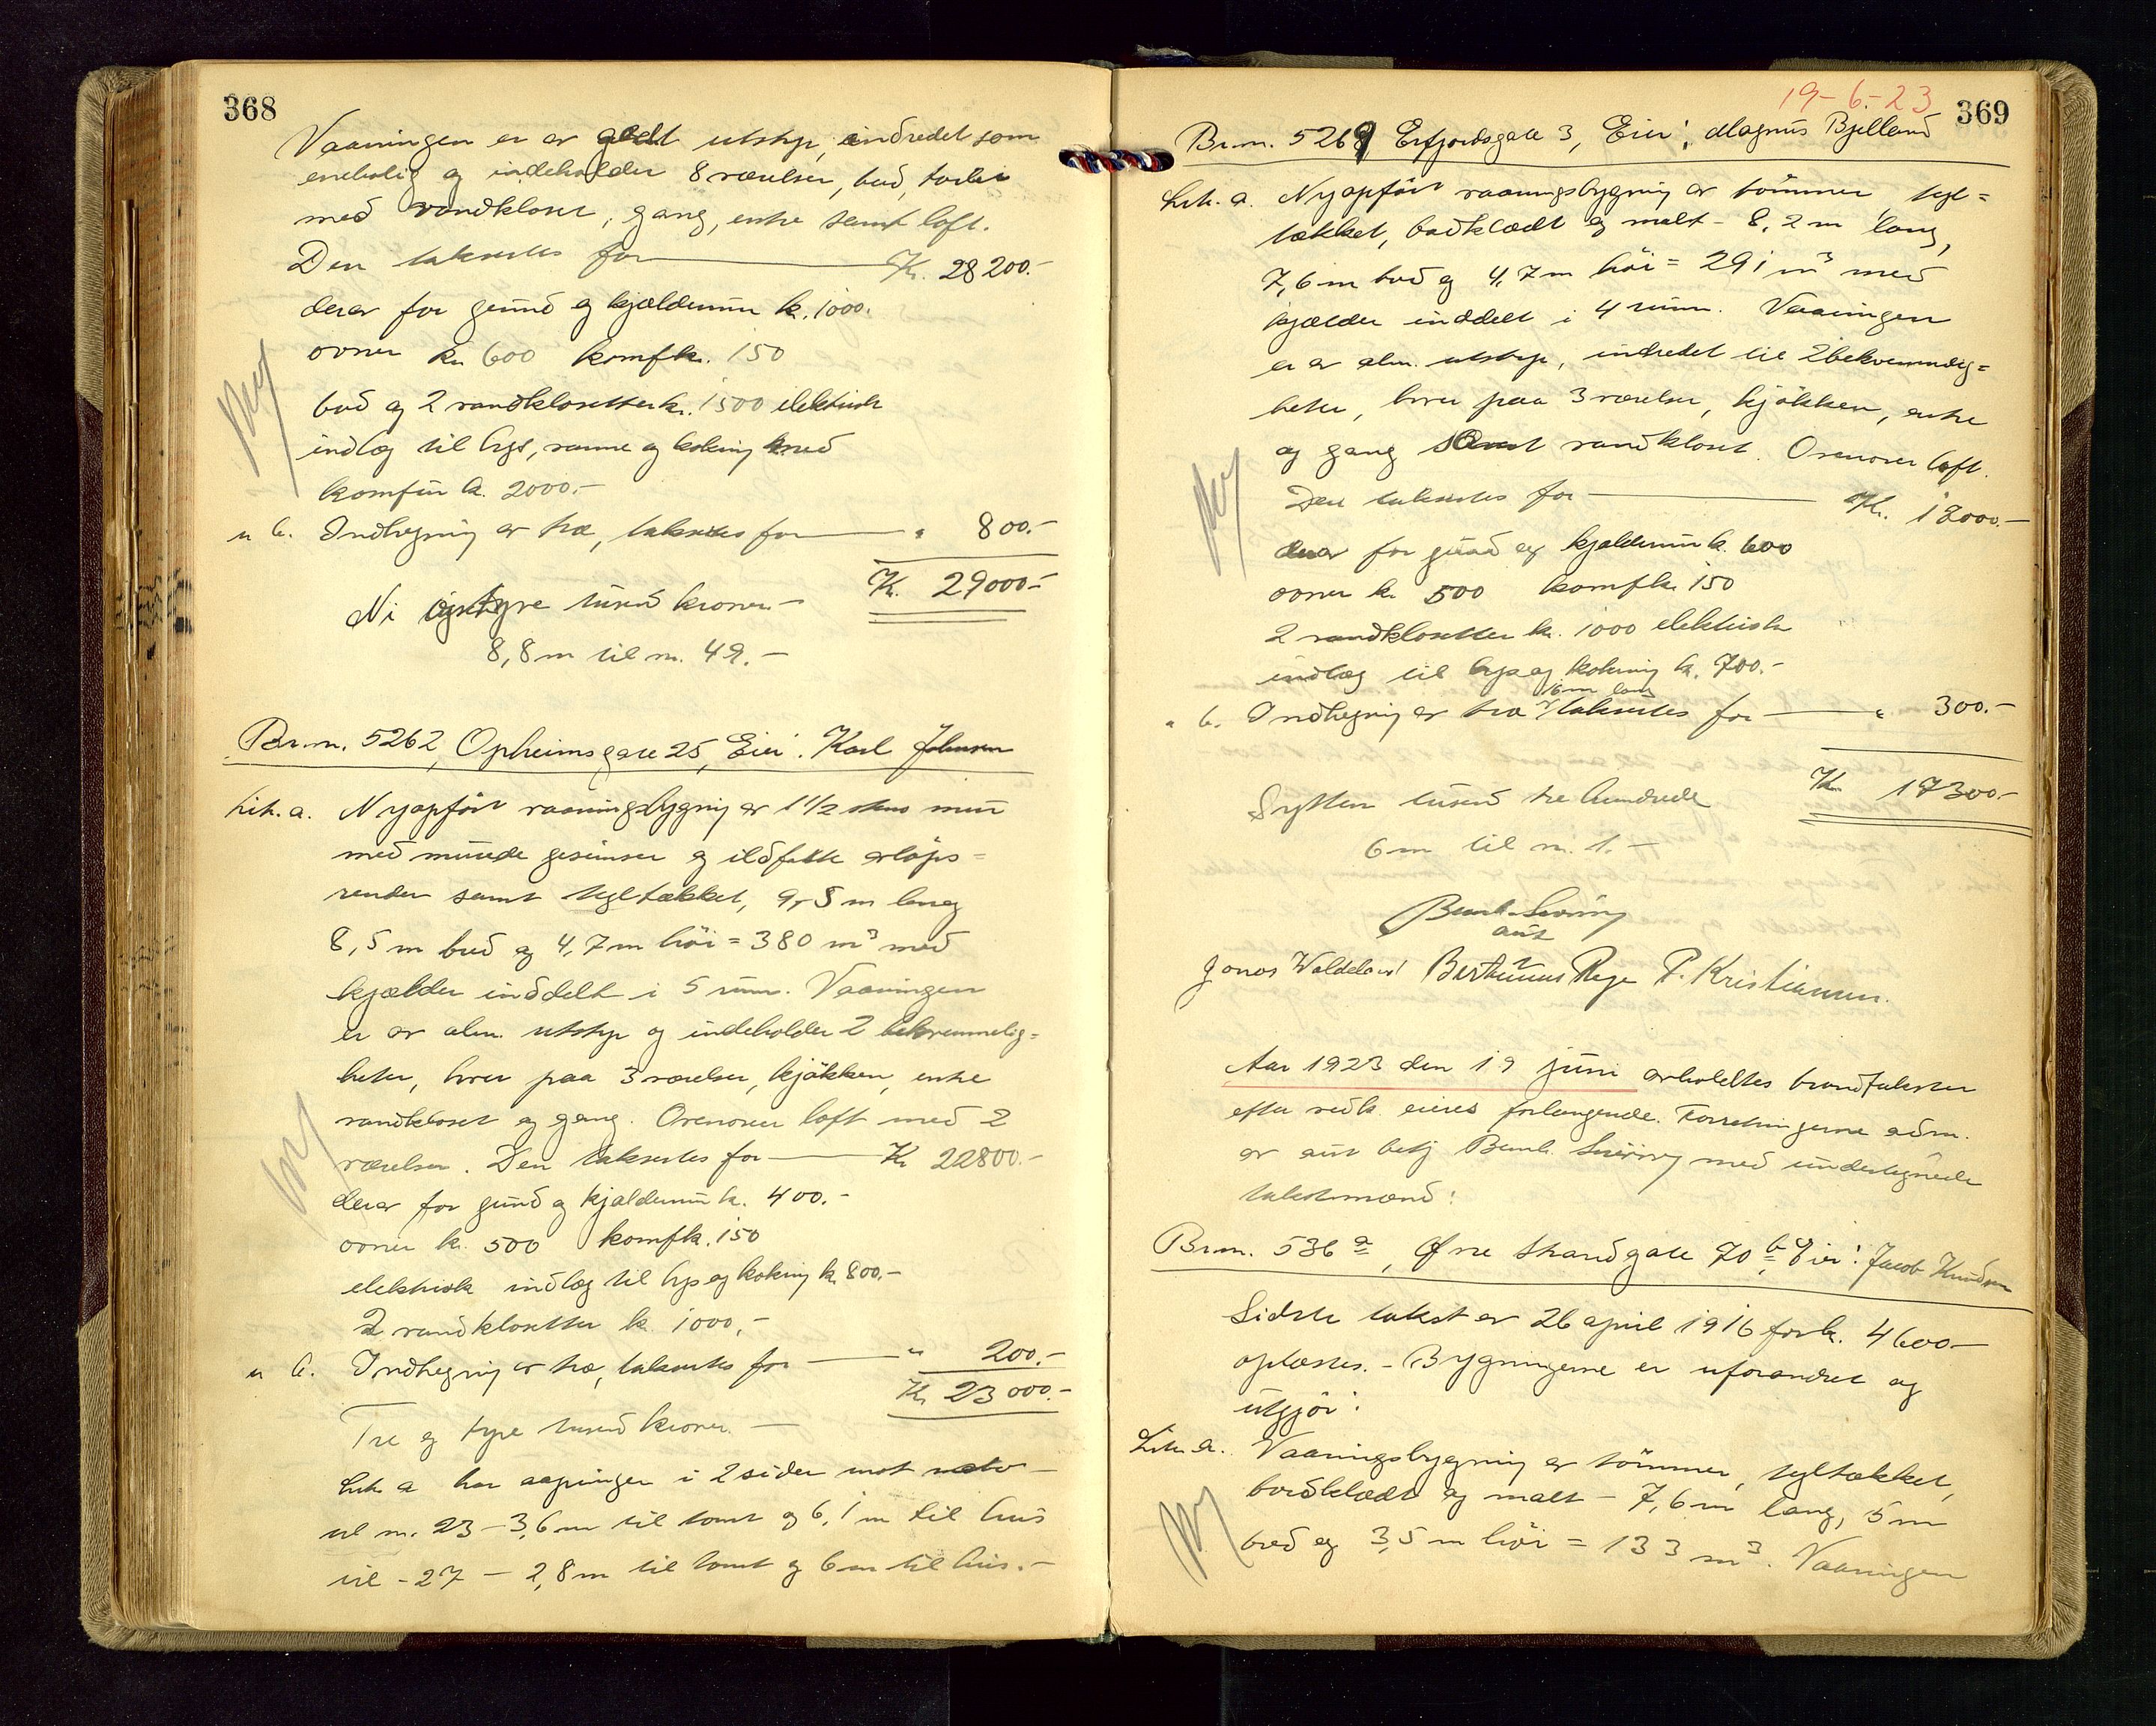 368
Vaaningen er av godt utstyr, indredet som
enebolig og indeholder 8 værelser, bad, toilet
med vandkloset, gang, entre samt loft.
Den takseres for Kr. 28200.-
derav for grund og kjældermur kr. 1000.
ovner kr. 600 komf kr. 150
bad og 2 vandklosetter kr. 1500 elektrisk
indlæg til lys, varme og kokning med
komfur kr. 2000.-
" b. Indhegning av træ, takseres for " 800.-
Kr. 29000.-
Ni og tyve tusend kroner -
8,8 m til nr. 49. -
Br.nr. 5262, Opheimsgate 25, Eier: Karl Johnsen
Lit. a. Nyopført vaaningsbygning av 1 1/2 stens mur
med murede gesimser og ildfaste avløps-
render samt tegltækket, 9,5 m lang
8,5 m bred og 4,7 m høi = 380 m³ med
kjælder inddelt i 5 rum. Vaaningen
er av alm. utstyr og indeholder 2 bekvemmelig=
heter, hver paa 3 værelser, kjøkken, entre
vandkloset og gang. Ovenover loft med 2
værelser. Den takseres for Kr. 22800.-
derav for grund og kjældermur kr. 400.-
ovner kr. 500 komf kr. 150
elektrisk indlæg til lys og kokning kr. 800.-
2 vandklosetter kr. 1000,-
" b. Indhegning av træ, takseres for " 200.-
Kr. 23000.-
Tre og tyve tusend kroner. -
Lit. a har aapninger i 2 sider mot nabo -
til nr. 23 - 3,6 m til tomt og 6,1 m til hus
til - 27 - 2,8 m til tomt og 6 m til hus. -
19-6-23
369
Br.nr. 5269 Erfjordsgate 3, Eier: Magnus Bjelland
Lit. a. Nyopført vaaningsbygning av tømmer, tegl=
tækket, bordklædt og malt - 8,2 m lang,
7,6 m bred og 4,7 m høi = 291 m³ med
kjælder inddelt i 4 rum. Vaaningen
er av alm. utstyr, indredet til 2 bekvemmelig=
heter, hver paa 3 værelser, kjøkken, entre
og gang samt vandkloset. Ovenover loft.
Den takseres for Kr. 17000.-
derav for grund og kjældermur kr. 600
ovner kr. 500 komf kr. 150
2 vandklosetter kr. 1000 elektrisk
indlæg til lys og kokning kr. 700.-
16 m lang
" b. Indhegning av træ takseres for " 300.-
Kr. 17300.-
Sytten tusend tre hundrede
6 m til nr. 1. -
aut
Jonas Waldeland Bertinius Rege P. Kristiansen.
Aar 1923 den 19 juni avholdtes brandtakster
efter vedk. eieres forlangende. Forretningerne adm.
av aut betj Bernh. Sivring med undertegnede
takstmænd:
Br.nr. 536 a, Øvre Strandgate 70 b, Eier: Jacob Knudsen
Sidste takst av 26 april 1916 for kr. 4600-
oplæstes. - Bygningerne er uforandret og
utgjør:
Lit. a. Vaaningsbygning av tømmer, tegltækket,
bordklædt og malt - 7,6 m lang, 5 m
bred og 3,5 m høi = 133 m³. Vaaningen